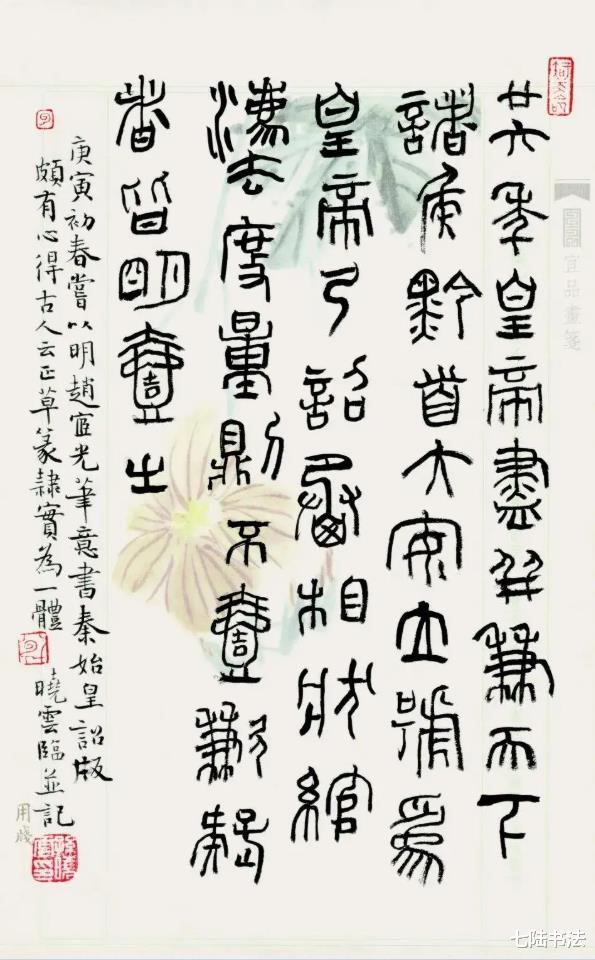 廿六年皇帝盡并兼天下
諸侯黔首大安立號為
皇帝乃詔丞相狀綰
灋度量則不壹歉疑
者皆明壹之
庚寅初春嘗以明趙宧光筆意書秦始皇詔版
頗有心得古人云正草篆隸實為一體 曉雲臨並記
宜品畫箋
用箋
七陆书法